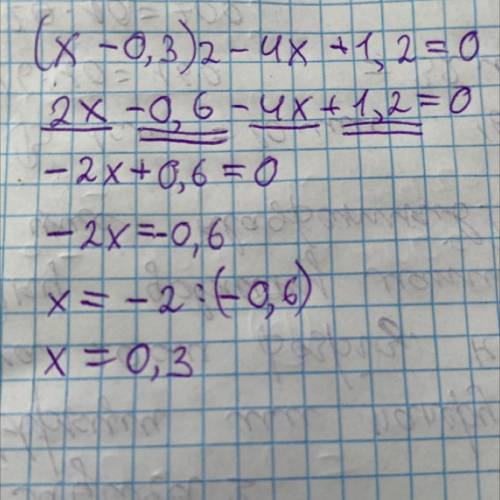 (x - 0,3)2 - 4x + 1,2 = 0
2x - 0,6 - 4x + 1,2 = 0
- 2x + 0,6 = 0
- 2x = -0,6
x = - 2 : (-0,6)
x = 0,3